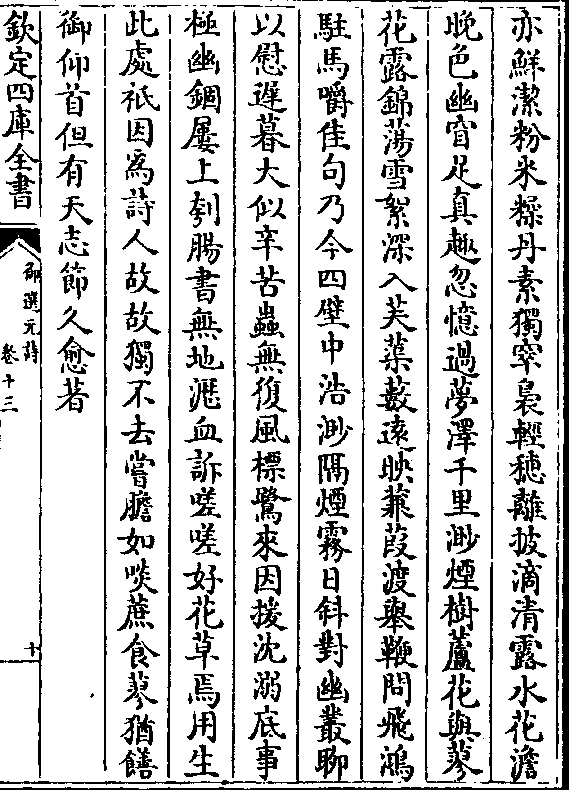 亦鮮潔粉米糝丹素獨窣裊輕穗離披滴清露水花澹
晚色幽窅足真趣忽憶過夢澤千里渺煙樹蘆花與蓼
花露錦蕩雪絮深入芙蕖藪遠映蒹葭渡舉鞭問飛鴻
駐馬嚼佳句乃今四壁中浩渺隔煙霧日斜對幽叢聊
以慰遲暮大似辛苦蟲無復風標鷺來因援沈溺底事
極幽錮屢上刳腸書無地瀝血訴嗟嗟好花草焉用生
此處祇因為詩人故故獨不去嘗膽如啖蔗食蓼猶饍
御仰首但有天志節久愈著
欽定四庫全書
御選元詩
卷十三
十